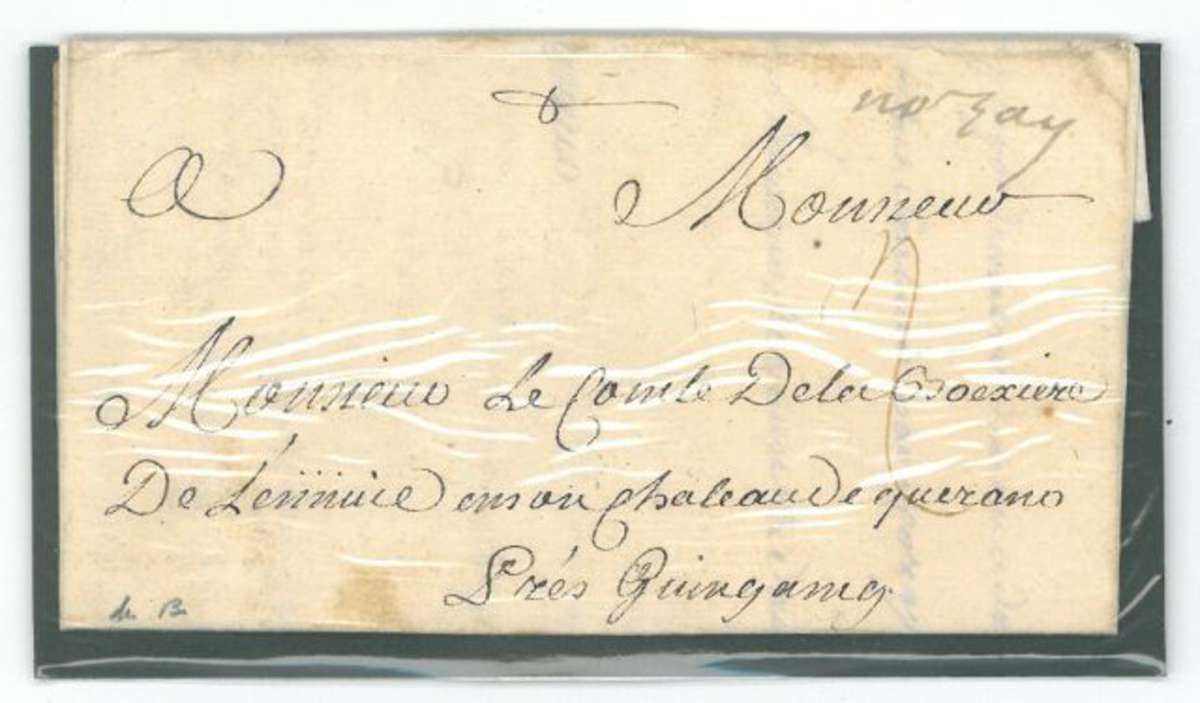 nozay
A Monsieur
Monsieur Le Comte De la Boexiere
De Lennuic en son Chateau de querano
Prés Guingamg.